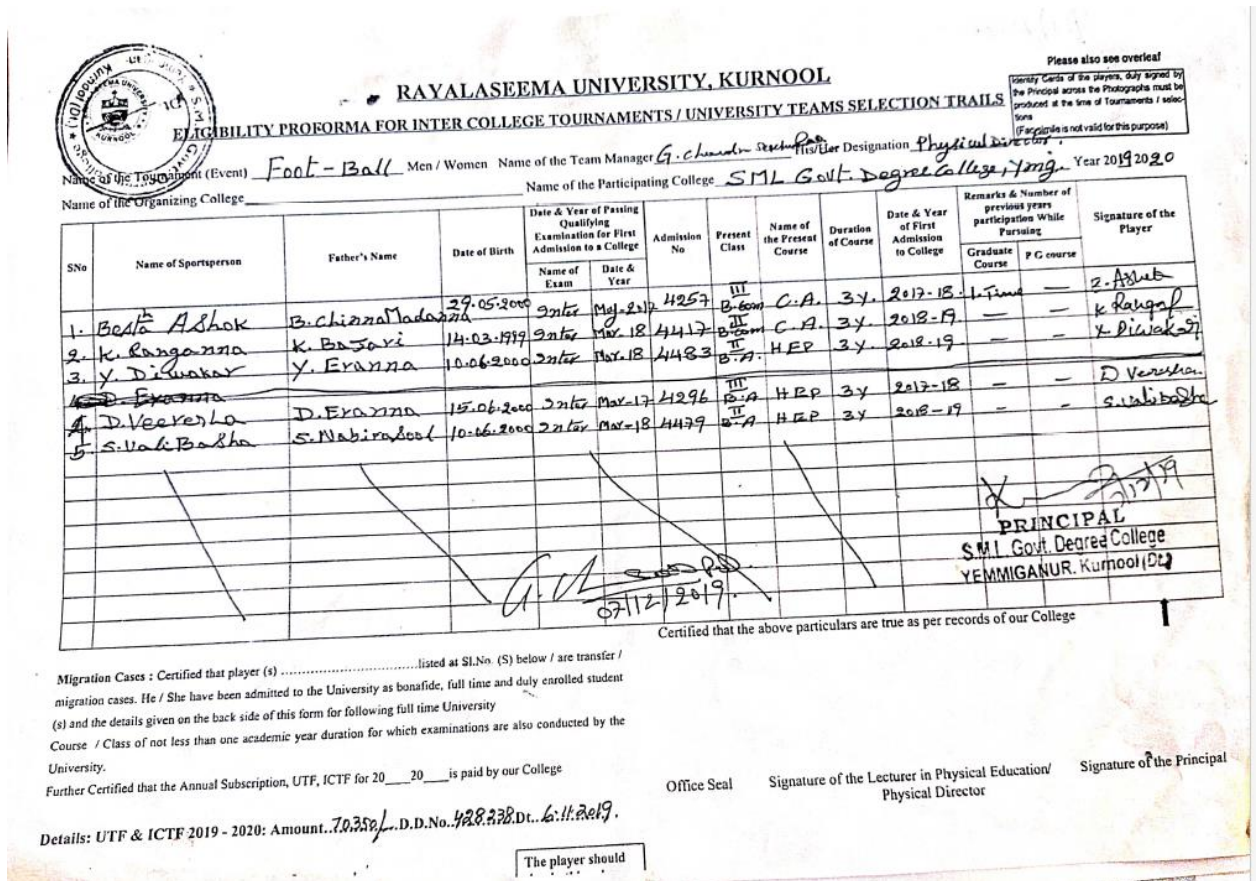 Please also see overleaf
Identity Cards of the players, duly signed by
the Principal across the Photographs must be
produced at the time of Tournaments / selec-
tions
(Facsimile is not valid for this purpose)
RAYALASEEMA UNIVERSITY, KURNOOL
ELIGIBILITY PROFORMA FOR INTER COLLEGE TOURNAMENTS / UNIVERSITY TEAMS SELECTION TRAILS
Name of the Tournament (Event) Foot-Ball Men / Women Name of the Team Manager G. His/Her Designation Physical Director
Name of the Organizing College Name of the Participating College SML Govt. Degree College, Ymg. Year 2019 2020
SNo Name of Sportsperson Father's Name Date of Birth Date & Year of Passing Qualifying Examination for First Admission to a College Name of Exam Date & Year Admission No Present Class Name of the Present Course Duration of Course Date & Year of First Admission to College Remarks & Number of previous years participation While Pursuing Graduate Course P G course Signature of the Player
1. Besta Ashok B. Chinna Madanna 29.05.2000 Inter 4257 III B.Com C.A. 3y. 2017-18 1. Time — Z. Ashok
2. K. Ranganna K. Bajari 14-03-1999 Inter Mar. 18 4417 II B.Com C.A. 3y. 2018-19 — —
3. Y. Diwakar Y. Eranna 10.06.2000 Inter Mar. 18 4483 II B.A. HEP 3y. 2018-19 — —
D. Eranna
4. D. Veeresha D. Eranna 15.06.2000 Inter Mar-17 4296 III B.A HEP 3y 2017-18 — — D Veresha
5. S. Vali Basha S. Nabirasool 10-06-2000 Inter Mar-18 4479 II B.A HEP 3y 2018-19 — — S. Valibasha
07/12/2019
PRINCIPAL
S.M.L. Govt. Degree College
YEMMIGANUR. Kurnool (Dt.)
Certified that the above particulars are true as per records of our College
Migration Cases : Certified that player (s) ....................................listed at Sl.No. (S) below / are transfer /
migration cases. He / She have been admitted to the University as bonafide, full time and duly enrolled student
(s) and the details given on the back side of this form for following full time University
Course / Class of not less than one academic year duration for which examinations are also conducted by the
University.
Further Certified that the Annual Subscription, UTF, ICTF for 20____20____is paid by our College
Office Seal Signature of the Lecturer in Physical Education/ Physical Director Signature of the Principal
Details: UTF & ICTF 2019 - 2020: Amount..70350/-..D.D.No..428238.Dt..6.11.2019.
The player should